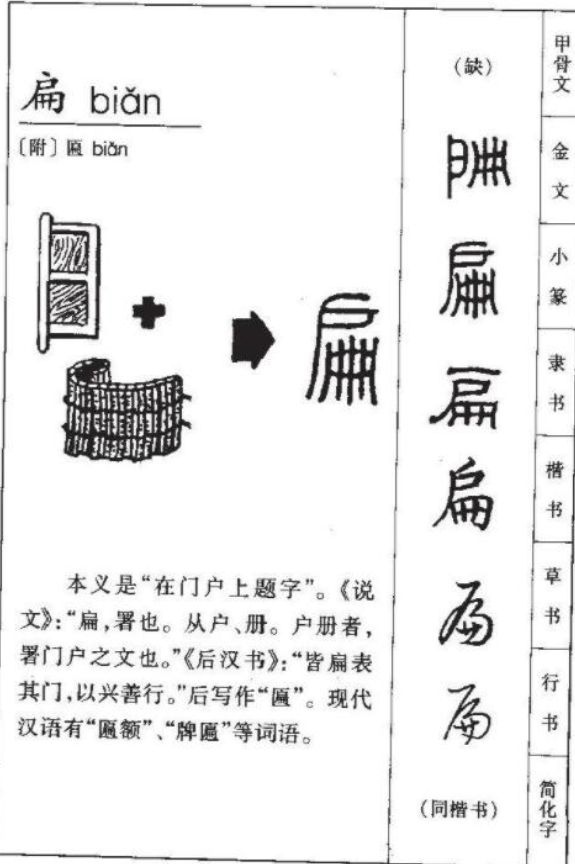 扁 biǎn
〔附〕匾 biǎn
本义是“在门户上题字”。《说
文》:“扁,署也。从户、册。户册者,
署门户之文也。”《后汉书》:“皆扁表
其门,以兴善行。”后写作“匾”。现代
汉语有“匾额”、“牌匾”等词语。
(缺) 甲骨文
扁 金文
扁 小篆
扁 隶书
扁 楷书
扁 草书
扁 行书
(同楷书) 简化字